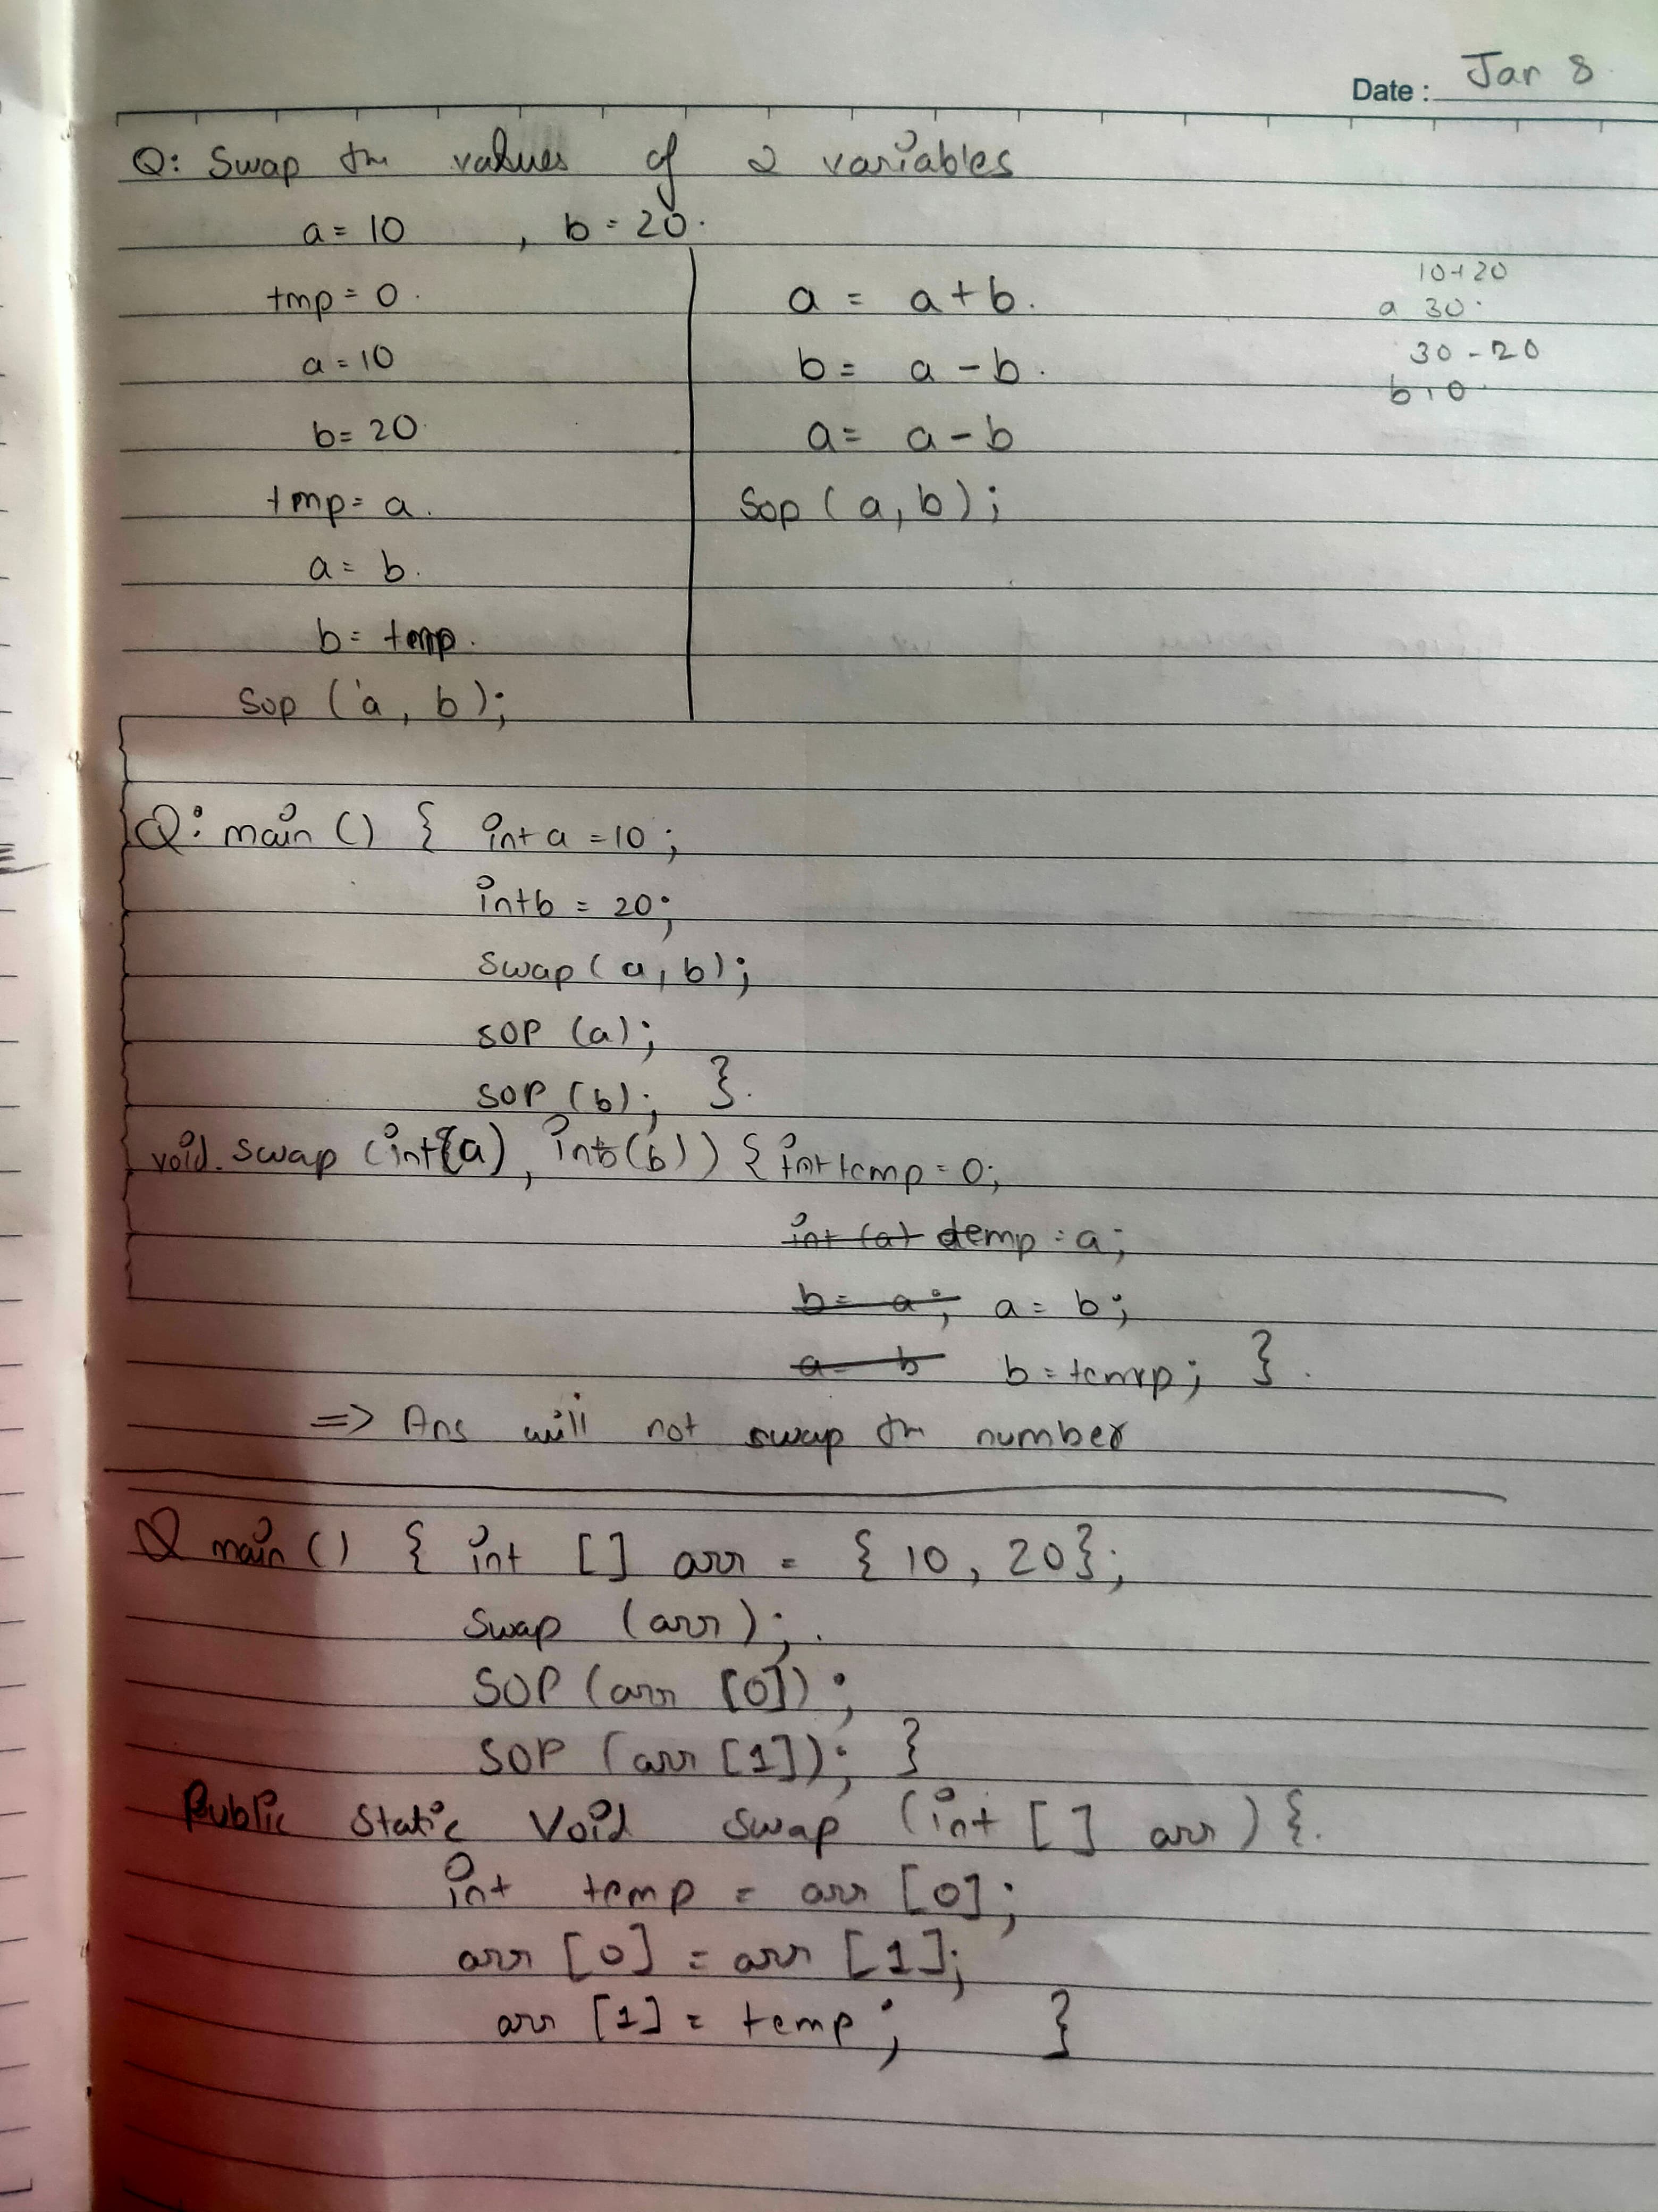 Date : Jan 8
Q: Swap the values of 2 variables
a = 10 , b = 20.
tmp = 0.
a = 10
b = 20.
tmp = a.
a = b.
b = tmp.
Sop (a, b);
a = a + b.
b = a - b.
a = a - b
Sop (a, b);
10+20
a 30.
30 - 20
b 10.
Q: main () { int a = 10;
int b = 20;
swap (a, b);
SOP (a);
SOP (b); }.
void. swap (int (a), int (b)) { int temp = 0;
int (a) temp = a;
b = a; a = b;
a = b b = temp; }.
=> Ans will not swap the number
Q main () { int [] arr = { 10, 20};
Swap (arr);.
SOP (arr [0]);
SOP (arr [1]); }
Public Static Void swap (int [] arr) {.
int temp = arr [0];
arr [0] = arr [1];
arr [1] = temp; }